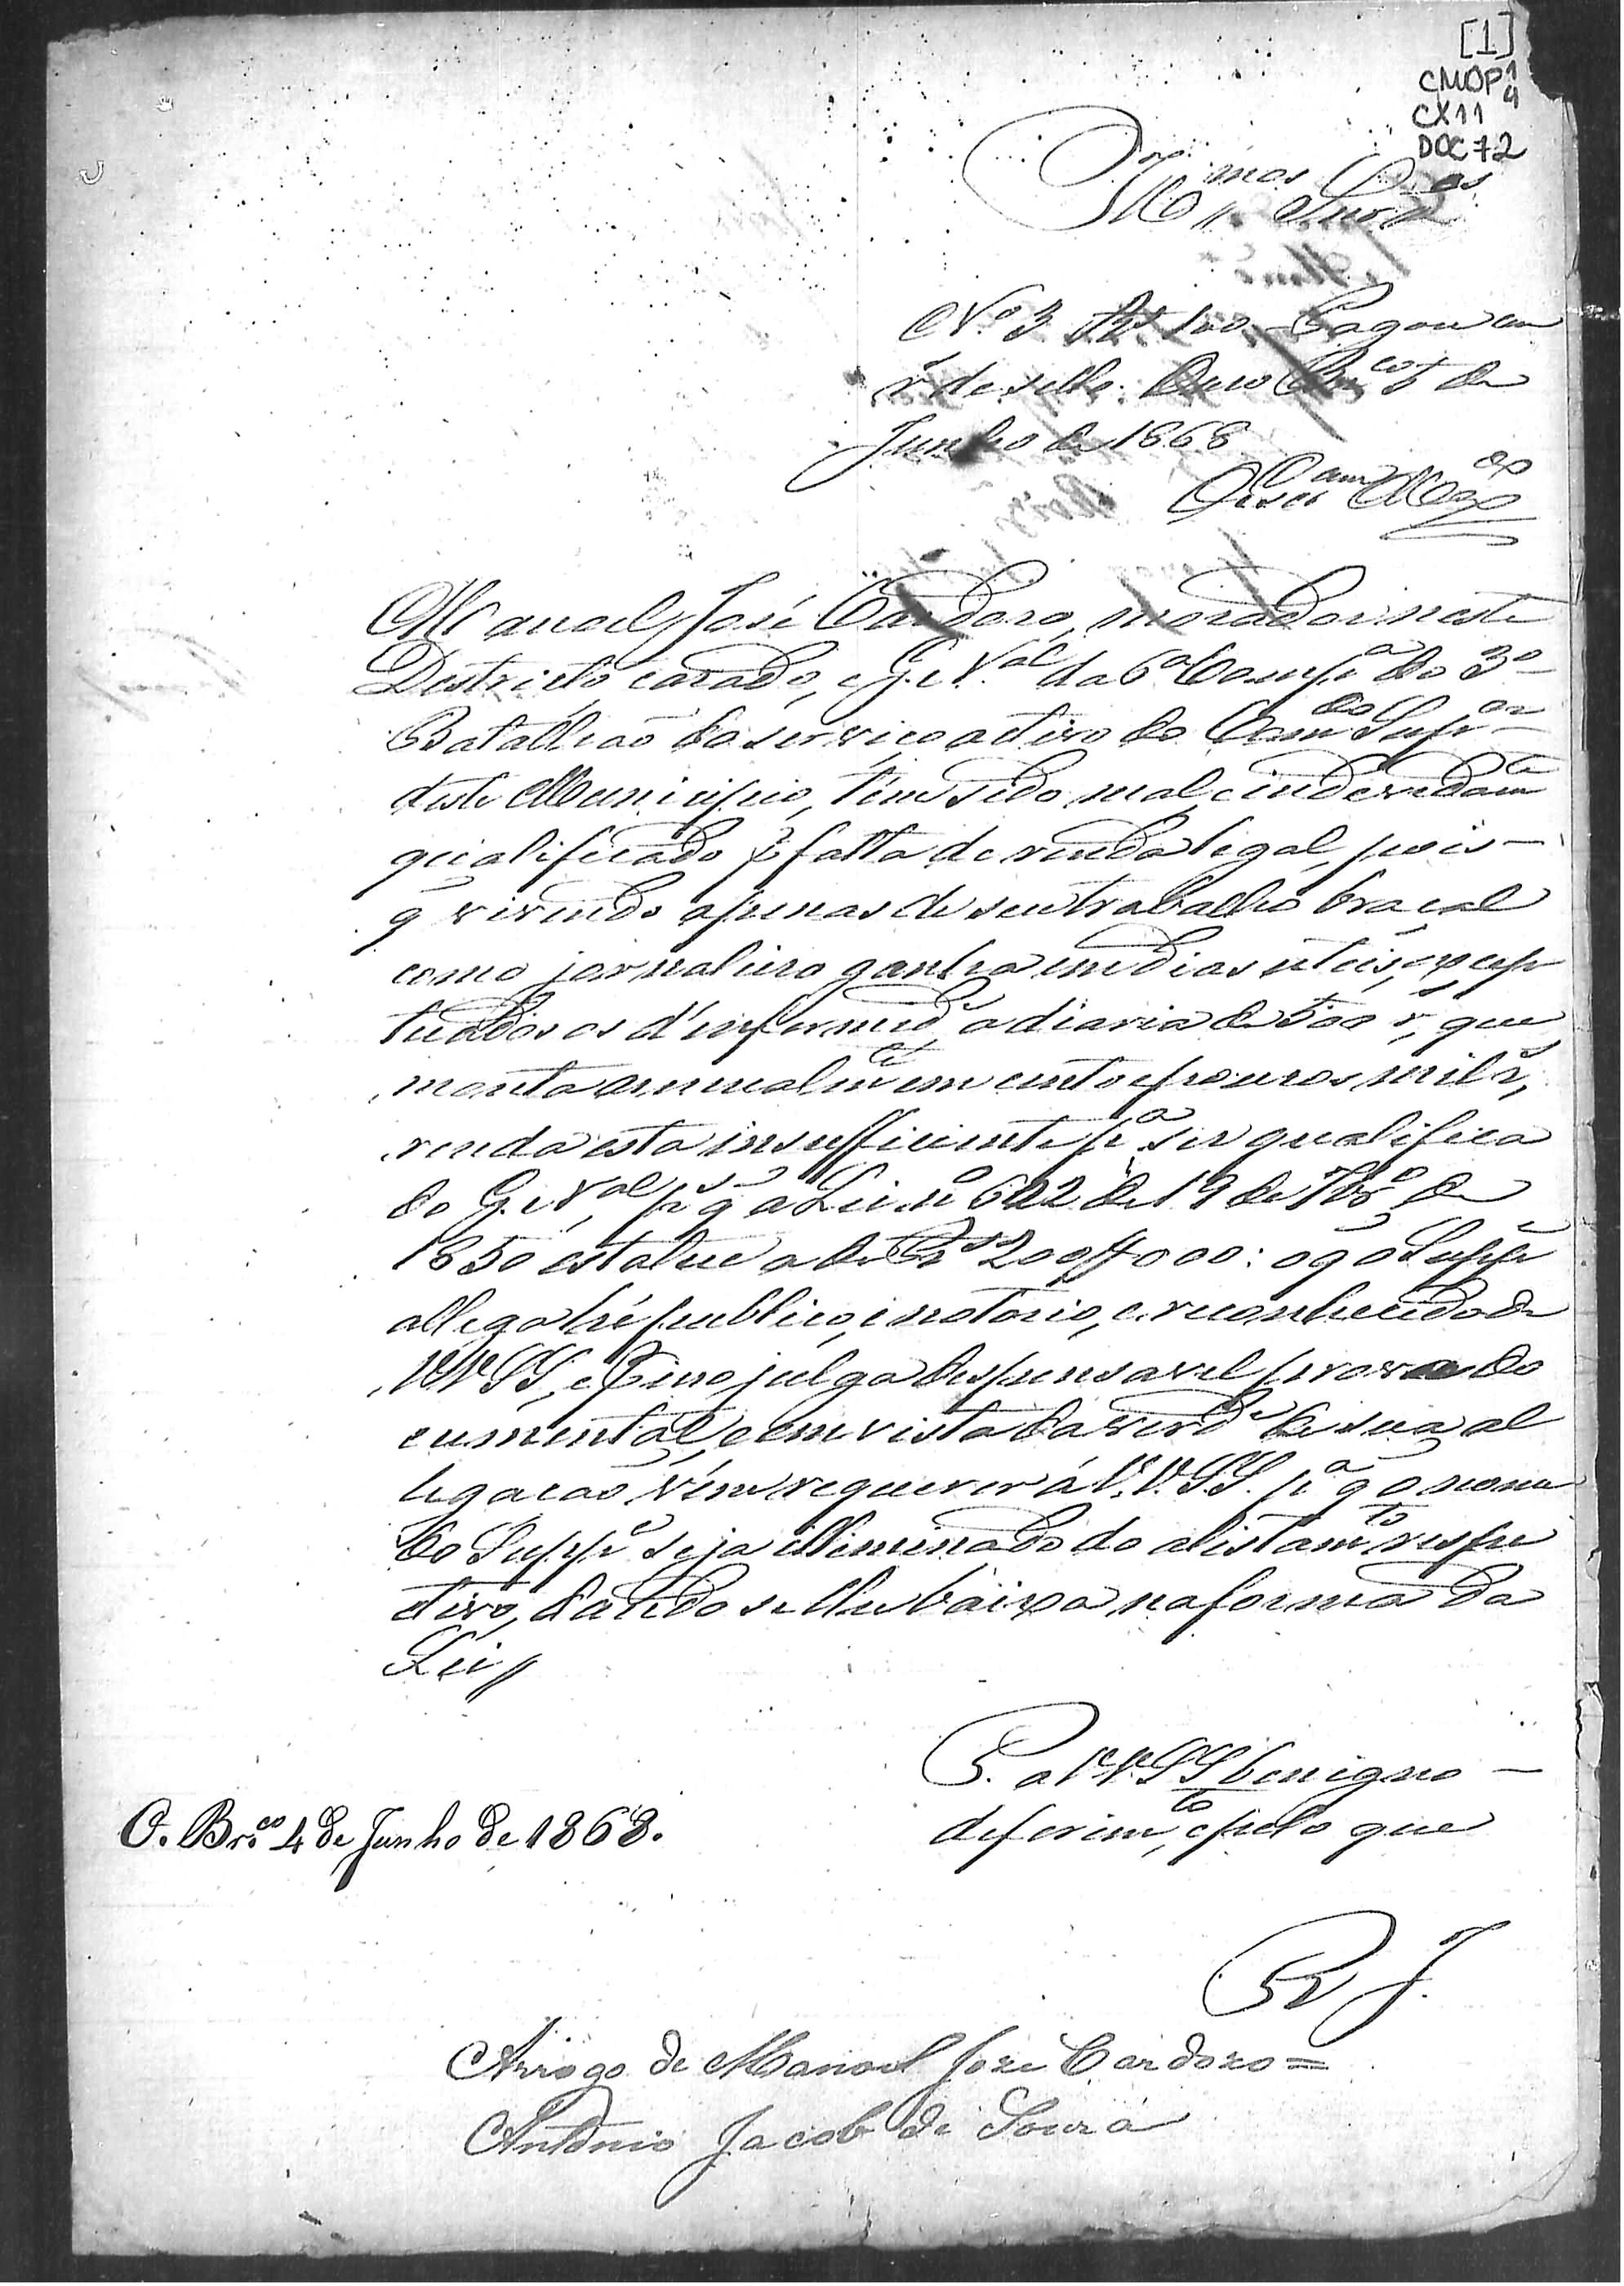 [1]
CMOP 1
4
CX11
DOC 72
Ill.mos Snr.es
N.o 3 Rs 100 Pagou cem
rs de sello. Ouro Pr.co 5 de
Junho de 1868
Manoel José Cardozo, morador neste
Destricto, cazado, e G. N.al da 6.a Comp.a do 3.o
Batalhaõ do serviço activo do Com.do Sup.or
deste Municipio, tem sido mal, e indevidam.te
qualificado p.r falta de renda legal, pois
q̃ vivendo apenas de seu trabalho braçal
como jornaleiro ganha em dias uteis, excep
tuados os d'enfermid.e, a diaria de 500 r.s, que
monta annualm.te em cento e poucos mil r.s,
renda esta insufficiente p.a ser qualifica
do G. N.al, p.s q̃ a Lei n.o 602 de 19 de 7br.o de
1850 estatue a de Rs 200$000: o q̃ o Supp.e
allega hé publico, e notorio, e reconhecido de
VV.SS., e p.r isso julga despensavel prova do
cumental, e em vista da verd.e de sua al
legacaõ vem requerer á V.V.S.S. p.a q̃ o nome
do Supp.e seja elliminado do alistam.to respe
ctivo, dando se lhe baixa na forma da
Lei //
P. a VV.SS benigno
deferim.to, e pelo que
O. Pr.co 4 de Junho de 1868.
E R J.
Arrogo de Manoel Jozé Cardozo =
Antonio Jacob de Souza